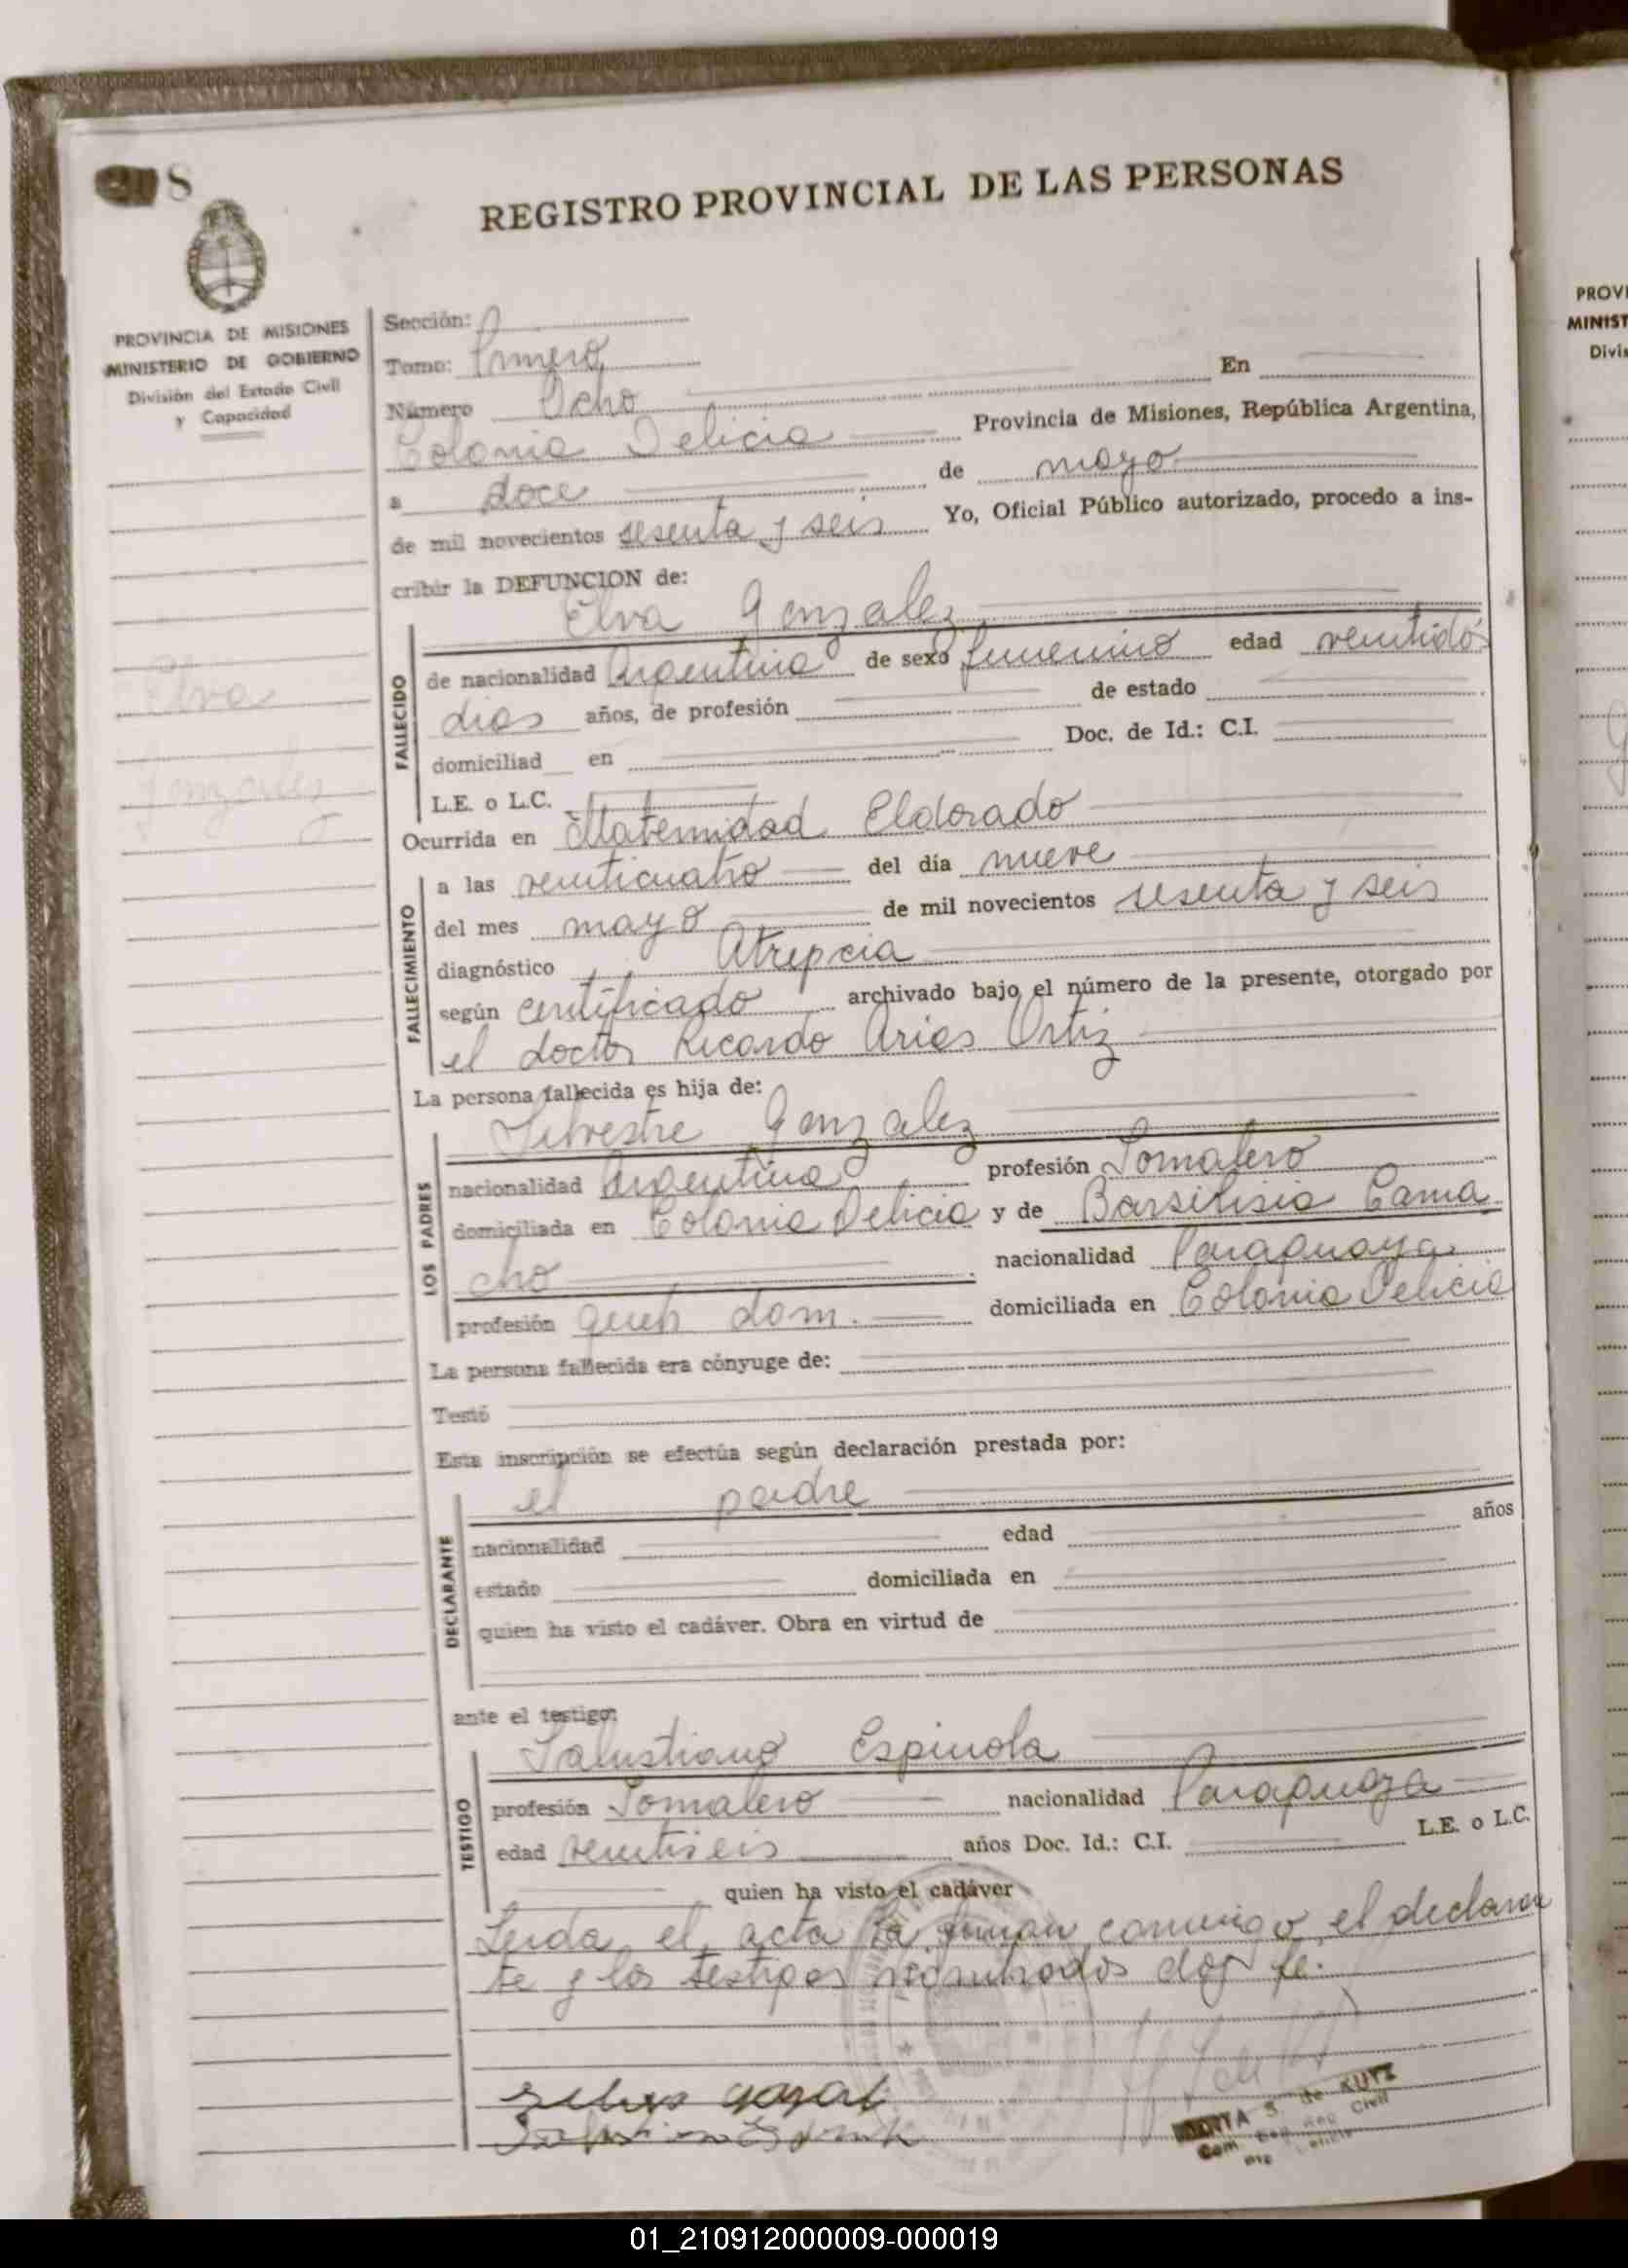 8
REGISTRO PROVINCIAL DE LAS PERSONAS
PROVINCIA DE MISIONES
MINISTERIO DE GOBIERNO
División del Estado Civil
y Capacidad
Elva
Gonzalez
Sección:
Tomo: Primero
Número Ocho En
Colonia Delicia Provincia de Misiones, República Argentina,
a doce de mayo
de mil novecientos sesenta y seis Yo, Oficial Público autorizado, procedo a ins-
cribir la DEFUNCION de:
Elva Gonzalez
FALLECIDO
de nacionalidad Argentina de sexo femenino edad veintidós
dias años, de profesión de estado
domiciliad en Doc. de Id.: C.I.
L.E. o L.C.
Ocurrida en Maternidad Eldorado
FALLECIMIENTO
a las veinticuatro del día nueve
del mes mayo de mil novecientos sesenta y seis
diagnóstico Atrepcia
según certificado archivado bajo el número de la presente, otorgado por
el doctor Ricardo Arias Ortiz
La persona fallecida es hija de:
Silvestre Gonzalez
LOS PADRES
nacionalidad Argentina profesión Jornalero
domiciliada en Colonia Delicia y de Barsilisia Cama
cho nacionalidad Paraguaya
profesión queh dom. domiciliada en Colonia Delicia
La persona fallecida era cónyuge de:
Testó
Esta inscripción se efectúa según declaración prestada por:
el padre
DECLARANTE
nacionalidad edad años
estado domiciliada en
quien ha visto el cadáver. Obra en virtud de
ante el testigo:
Salustiano Espinola
TESTIGO
profesión Jornalero nacionalidad Paraguaya
edad veintiseis años Doc. Id.: C.I. L.E. o L.C.
quien ha visto el cadáver
Leida el acta la firman conmigo el declaran
te y los testigos nombrados doy fe.
S. de KUTZ
PROVI
MINIST
Divis
01_210912000009-000019